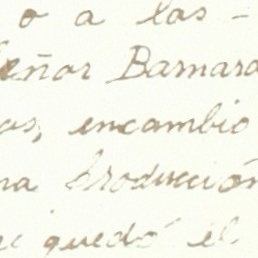 o a las -
Señor Barnara
os, encambio
na producción
quedó el